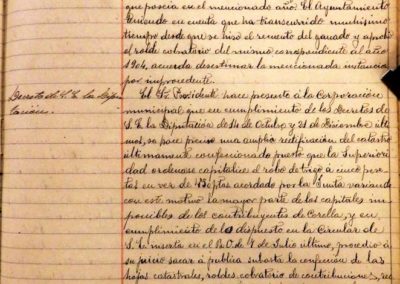 que poseia en el mencionado año. El Ayuntamiento
teniendo en cuenta que ha transcurrido muchisimo
tiempo desde que se hizo el recuento del ganado y aprobó
el rolde cobratorio del mismo correspondiente al año
1904, acuerda desestimar la mencionada instancia
por improcedente.
Decreto de S.E. la Dipu-
tación.
El Sr. Presidente hace presente á la Corporación
municipal que en cumplimiento de los Decretos de
S.E. la Diputación de 14 de Octubre y 21 de Diciembre últi-
mos, se hace preciso una amplia rectificación del catastro
últimamente confeccionado puesto que la Superiori-
dad ordenase capitalice el robo de trigo a cinco pese-
tas en vez de 4'50 ptas acordado por la Junta variando
con este motivo la mayor parte de los capitales im-
ponibles de los contribuyentes de Corella, y en
cumplimiento de lo dispuesto en la Circular de
S.E. inserta en el B.O. de 1 de Julio último, procedia á
su juicio sacar á publica subasta la confección de las
hojas catastrales, roldes, cobratorio de contribuciones,